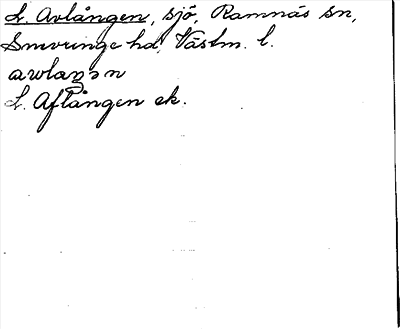 L. Avlången, sjö, Ramnäs sn,
Snevringe hd, Västm. l.
awlaŋən
L. Aflången ek.